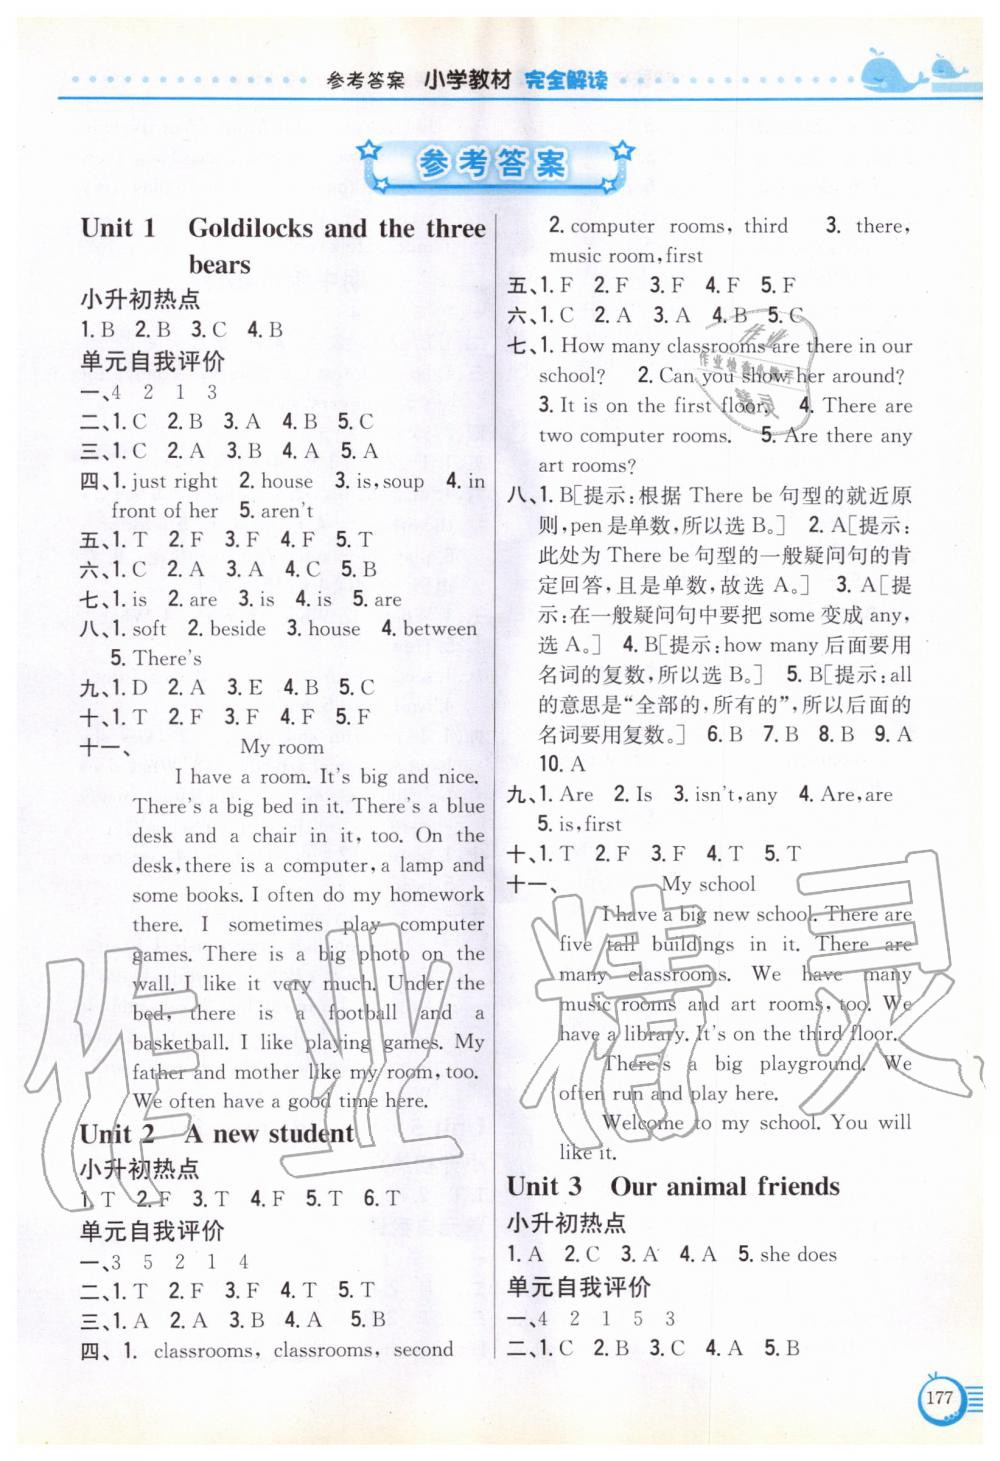 参考答案 小学教材 完全解读
参考答案
Unit 1 Goldilocks and the three
bears
小升初热点
1. B 2. B 3. C 4. B
单元自我评价
一、4 2 1 3
二、1. C 2. B 3. A 4. B 5. C
三、1. C 2. A 3. B 4. A 5. A
四、1. just right 2. house 3. is, soup 4. in
front of her 5. aren't
五、1. T 2. F 3. F 4. F 5. T
六、1. C 2. A 3. A 4. C 5. B
七、1. is 2. are 3. is 4. is 5. are
八、1. soft 2. beside 3. house 4. between
5. There's
九、1. D 2. A 3. E 4. B 5. C
十、1. T 2. F 3. F 4. F 5. F
十一、 My room
I have a room. It's big and nice.
There's a big bed in it. There's a blue
desk and a chair in it, too. On the
desk, there is a computer, a lamp and
some books. I often do my homework
there. I sometimes play computer
games. There is a big photo on the
wall. I like it very much. Under the
bed, there is a football and a
basketball. I like playing games. My
father and mother like my room, too.
We often have a good time here.
Unit 2 A new student
小升初热点
1. T 2. F 3. T 4. F 5. T 6. T
单元自我评价
一、3 5 2 1 4
二、1. T 2. F 3. F 4. T 5. T
三、1. A 2. A 3. B 4. A 5. B
四、1. classrooms, classrooms, second
2. computer rooms, third 3. there,
music room, first
五、1. F 2. F 3. F 4. F 5. F
六、1. C 2. A 3. A 4. B 5. C
七、1. How many classrooms are there in our
school? 2. Can you show her around?
3. It is on the first floor. 4. There are
two computer rooms. 5. Are there any
art rooms?
八、1. B[提示:根据 There be 句型的就近原
则,pen 是单数,所以选 B。] 2. A[提示:
此处为 There be 句型的一般疑问句的肯
定回答,且是单数,故选 A。] 3. A[提
示:在一般疑问句中要把 some 变成 any,
选 A。] 4. B[提示:how many 后面要用
名词的复数,所以选 B。] 5. B[提示:all
的意思是“全部的,所有的”,所以后面的
名词要用复数。] 6. B 7. B 8. B 9. A
10. A
九、1. Are 2. Is 3. isn't, any 4. Are, are
5. is, first
十、1. T 2. F 3. F 4. T 5. T
十一、 My school
I have a big new school. There are
five tall buildings in it. There are
many classrooms. We have many
music rooms and art rooms, too. We
have a library. It's on the third floor.
There's a big playground. We
often run and play here.
Welcome to my school. You will
like it.
Unit 3 Our animal friends
小升初热点
1. A 2. C 3. A 4. A 5. she does
单元自我评价
一、4 2 1 5 3
二、1. C 2. B 3. C 4. A 5. B
177
作业精灵